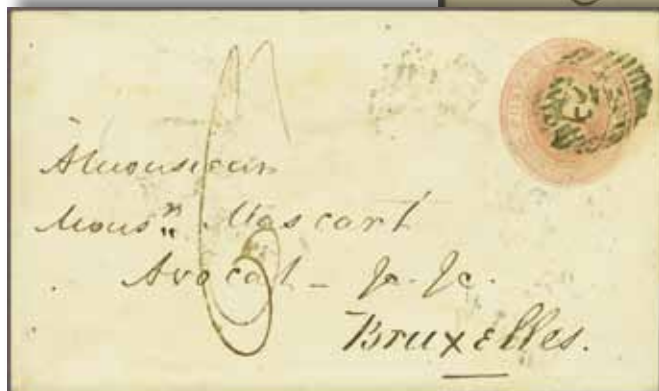 A Monsieur
Mons.r Mascart
Avocat -
Bruxelles.